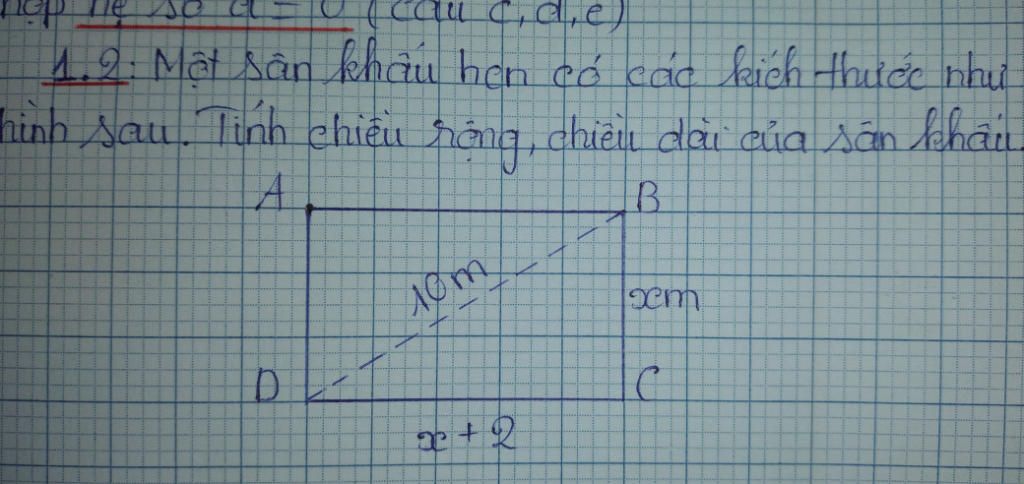 hệ số a = 0 (câu c, d, e)
1.2: Một sân khấu hcn có các kích thước như
hình sau. Tính chiều rộng, chiều dài của sân khấu.
A
B
10m
xm
D
C
x + 2